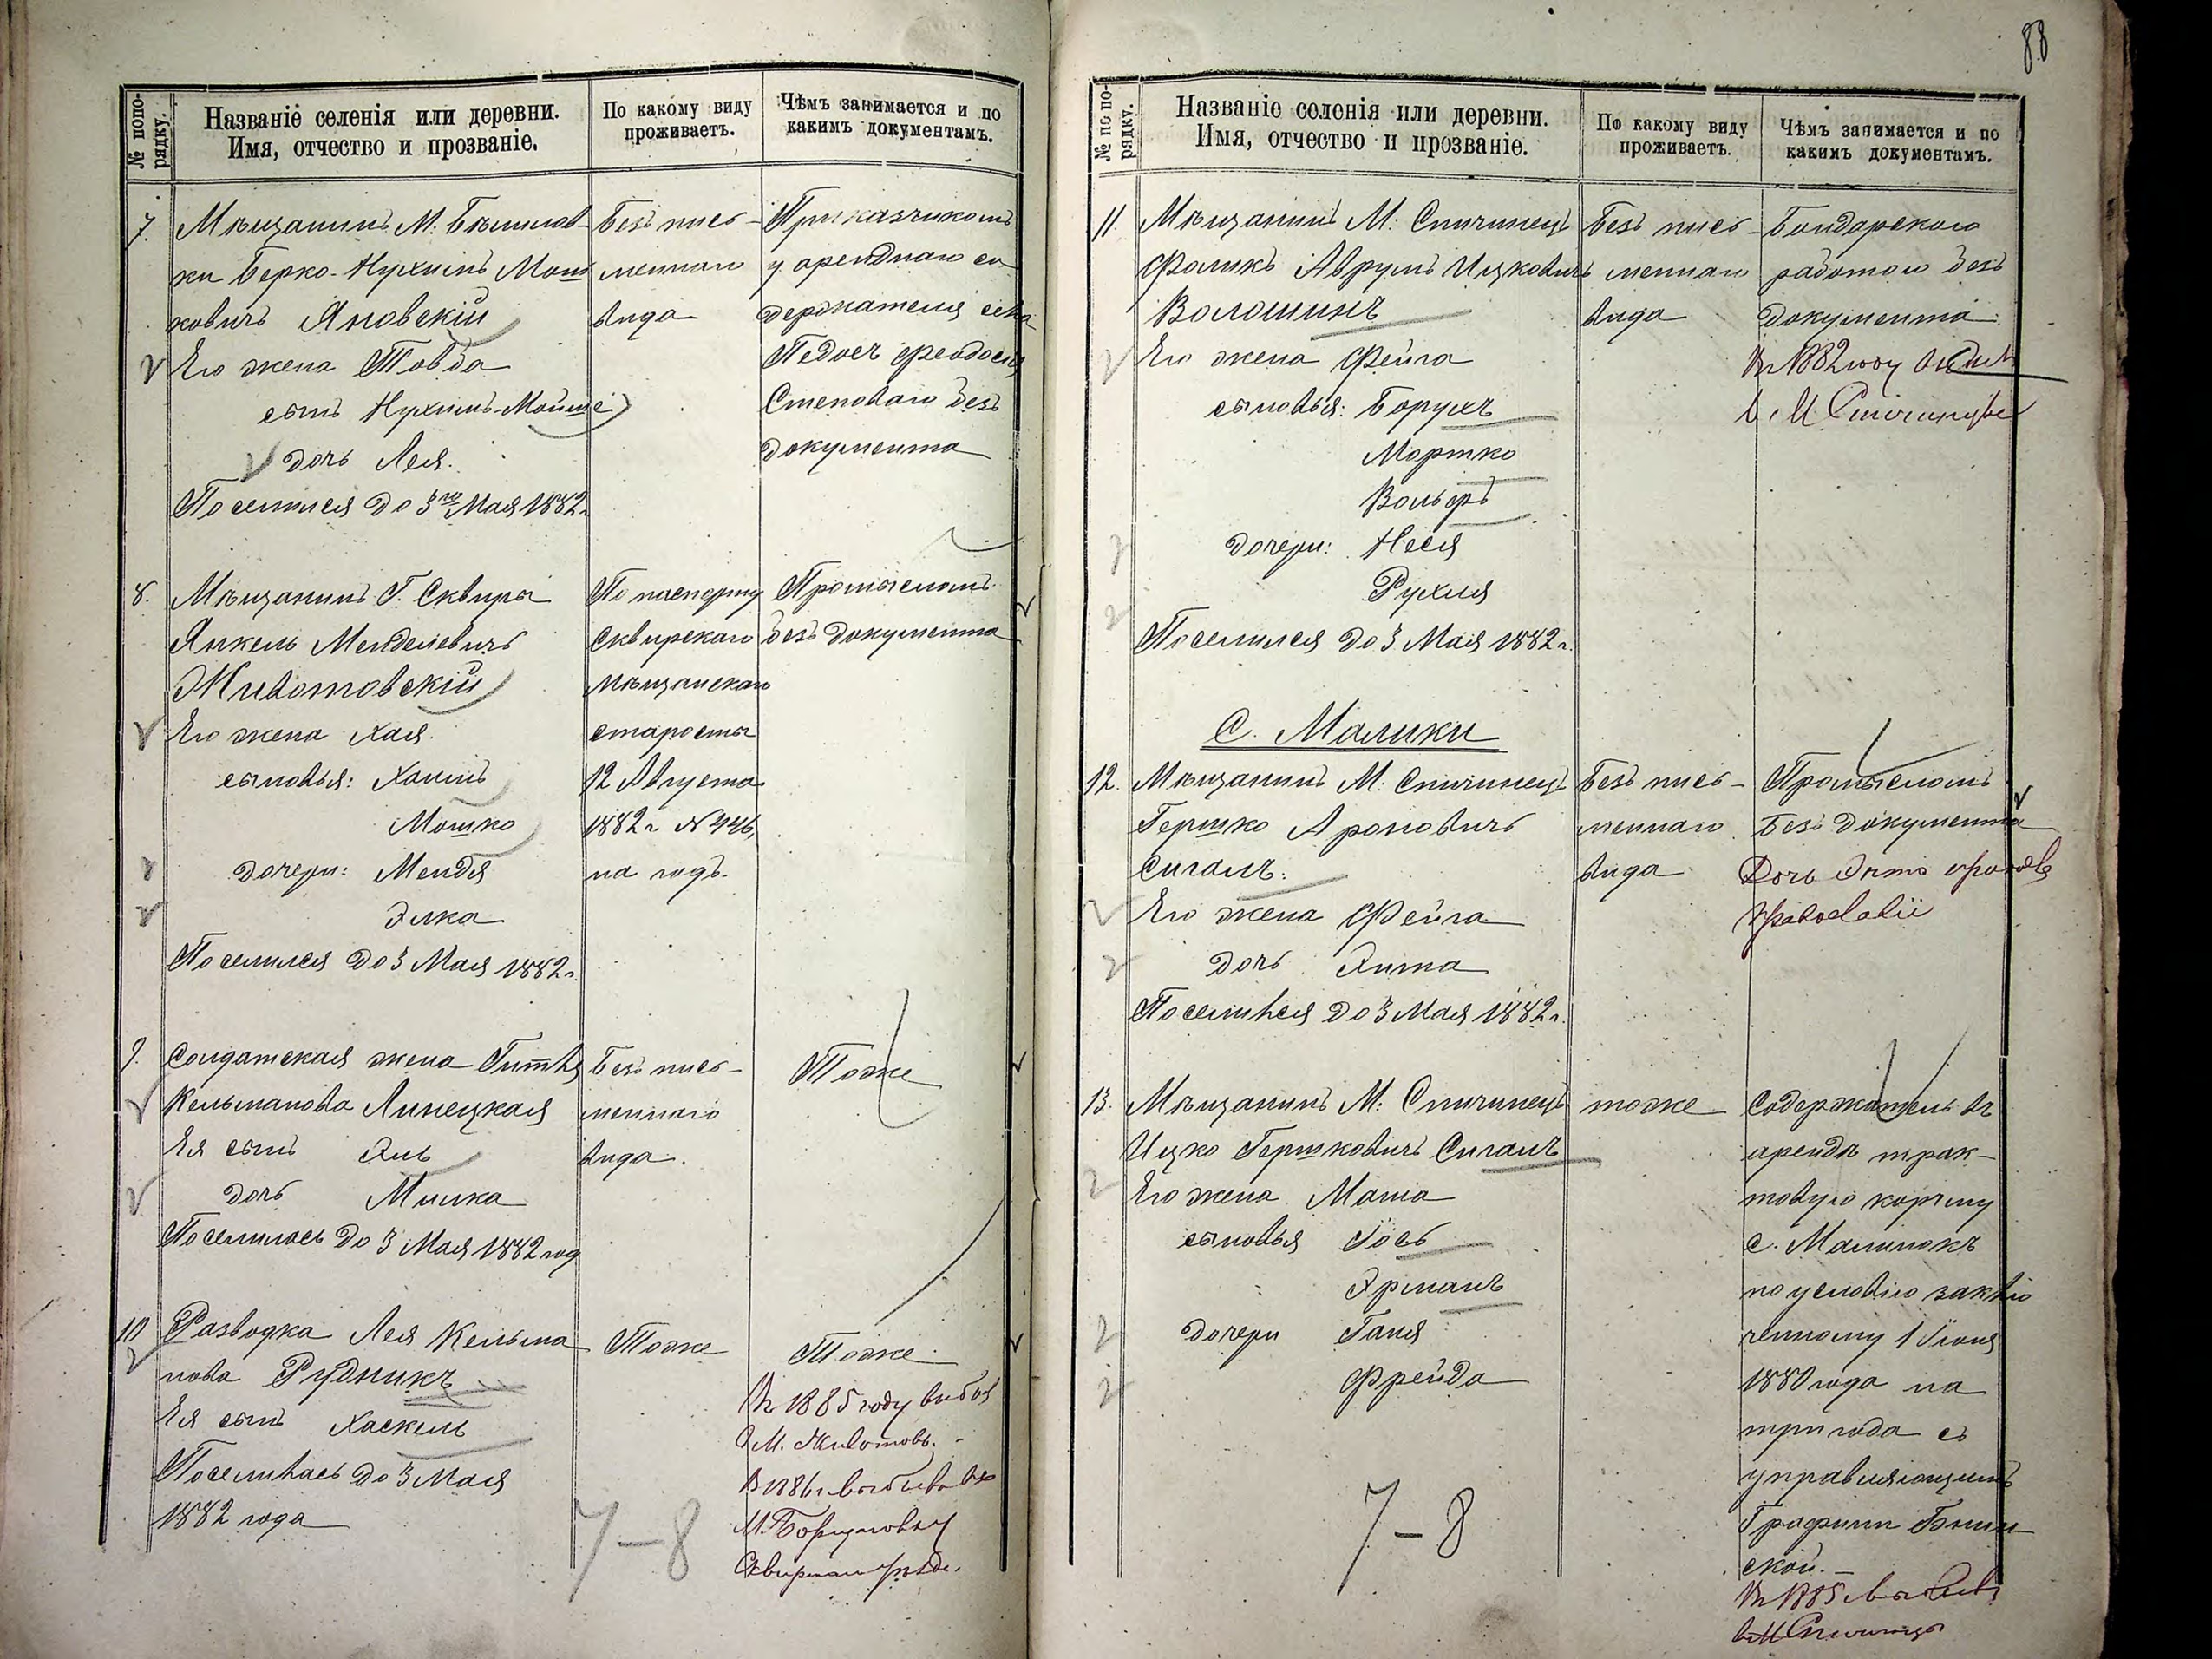 № попо-
рядку.
Названіе селенія или деревни.
Имя, отчество и прозваніе.
По какому виду
проживаетъ.
Чѣмъ занимается и по
какимъ документамъ.
7.
Мѣщанинъ М. Бѣлилов-
ки Берко-Нухимъ Мош
ковичъ Яновскій
Его жена Товба
сынъ Нухимъ-Мойше
дочь Лея.
Поселился до 3го Мая 1882 г
Безъ пись-
меннаго
вида
Приказчикомъ
у аренднаго со
держателя села
Педосъ Феодосія
Степоваго безъ
документа
8.
Мѣщанинъ Г. Сквиры
Янкель Менделевичъ
Животовскій
Его жена Хая.
сыновья: Хаимъ
Мошко
дочери: Мендя
Элка
Поселился до 3 Мая 1882 г.
По паспорту
Сквирскаго
мѣщанскаго
старосты
12 Августа
1882 г № 446,
на годъ.
Промысломъ
безъ документа
9.
Солдатская жена Гитля
Кельманова Линецкая
Ея сынъ Эль
дочь Милка
Поселилась до 3 Мая 1882 год
Безъ пись-
меннаго
вида.
Тоже
10
Разводка Лея Кельма
нова Рудникъ
Ея сынъ Хаскель
Поселилась до 3 Мая
1882 года
Тоже
Тоже
Въ 1885 году выбыл
в М. Животовъ.
В 1886 г выбыла въ
М.
Сквирскаго уѣзда.
7-8
88
№ по по-
рядку.
Названіе селенія или деревни.
Имя, отчество и прозваніе.
По какому виду
проживаетъ.
Чѣмъ занимается и по
какимъ документамъ.
11.
Мѣщанинъ М. Спичинецъ
Фоликъ Аврумъ Ицковичъ
Волошинъ
Его жена Фейга
сыновья: Борухъ
Мортко
Вольфъ
дочери: Неся
Рухля
Поселился до 3 Мая 1882 г.
Безъ пись-
меннаго
вида
Бондарского
работою безъ
документа.
Въ 1882 году
в М Спичинцы
С. Малики
12.
Мѣщанинъ М. Спичинецъ
Гершко Ароновичъ
Сигалъ.
Его жена Фейга
дочь Энта
Поселился до 3 Мая 1882 г.
Безъ пись-
меннаго
вида
Промысломъ
Безъ документа
Дочь Энта
Православіи
13.
Мѣщанинъ М. Спичинецъ
Ицко Гершковичъ Сигалъ
Его жена Маша
сыновья Іось
Эрманъ
дочери Ганя
Фрейда
тоже
Содержатель въ
арендѣ трак-
товую корчму
с. Малинокъ
по условію заклю
ченному 1 Іюня
1880 года на
три года съ
управляющимъ
Графини
ской.-
Въ 1885 г выбылъ
в М Спичинцы
7-8